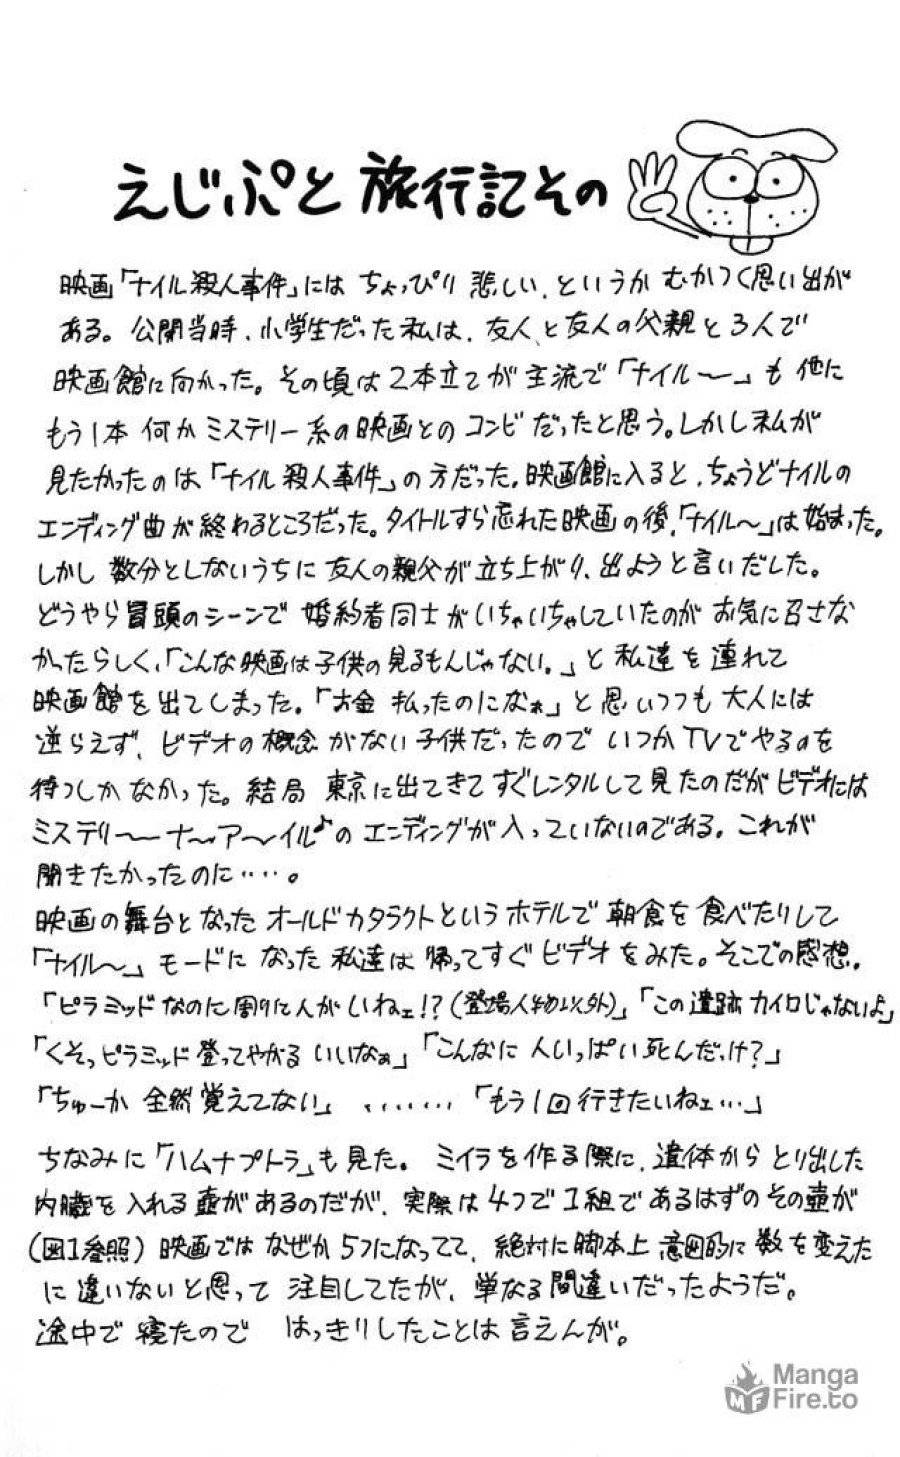 えじぷと旅行記その
映画「ナイル殺人事件」には ちょっぴり 悲しい、というか むかつく思い出が
ある。公開当時、小学生だった私は、友人と友人の父親と3人で
映画館に向かった。その頃は2本立てが主流で「ナイル〜」も 他に
もう1本 何か ミステリー系の映画とのコンビだったと思う。しかし私が
見たかったのは「ナイル殺人事件」の方だった。映画館に入ると、ちょうどナイルの
エンディング曲が終わるところだった。タイトルすら忘れた映画の後、「ナイル〜」は始まった。
しかし 数分としないうちに 友人の親父が立ち上がり、出ようと言いだした。
どうやら冒頭のシーンで 婚約者同士がいちゃいちゃしていたのが お気に召さな
かったらしく、「こんな映画は子供の見るもんじゃない。」と 私達を連れて
映画館を出てしまった。「お金 払ったのになぁ」と思いつつも 大人には
逆らえず、ビデオの概念がない子供だったので いつかTVでやるのを
待つしかなかった。結局 東京に出てきてすぐレンタルして見たのだが ビデオには
ミステリ〜〜ナ〜ア〜イル♪の エンディングが入っていないのである。これが
聞きたかったのに……。
映画の舞台となった オールドカタラクトというホテルで 朝食を食べたりして
「ナイル〜」モードに なった 私達は 帰ってすぐビデオをみた。そこでの感想。
「ピラミッドなのに周りに人がいねェ!?(登場人物以外)」「この遺跡カイロじゃないよ」
「くそっピラミッド登ってやがる いいなぁ」「こんなに人いっぱい死んだっけ?」
「ちゅーか 全然覚えてない」........「もう1回行きたいねェ…」
ちなみに「ハムナプトラ」も見た。ミイラを作る際に、遺体からとり出した
内臓を入れる壺があるのだが、実際は4つで1組であるはずのその壺が
(図1参照)映画ではなぜか5つになってて、絶対に脚本上 意図的に数を変えた
に違いないと思って 注目してたが、単なる間違いだったようだ。
途中で寝たので はっきりしたことは言えんが。
Manga
Fire.to
MF